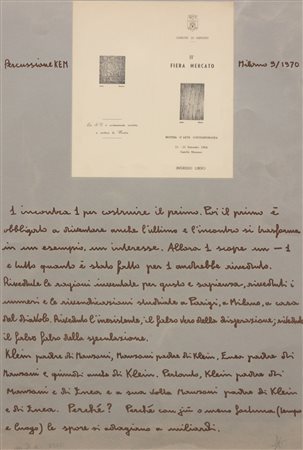 Percussione KEM
Milano 5/1970
II
FIERA MERCATO
MOSTRA D'ARTE CONTEMPORANEA
INGRESSO LIBERO
1 incontra 1 per costruire il primo. Poi il primo è
obbligato a diventare anche l'ultimo e l'incontro si trasforma
in un esempio, un interesse. Allora 1 scopre un - 1
e tutto quanto è stato fatto per 1 andrebbe riveduto.
Rivedute le ragioni inventate per gusto e sapienza, riveduti i
numeri e le rivendicazioni studiate a Parigi, a Milano, a casa
del diavolo. Riveduto l'inesistente, il falso vero della disperazione; rivedute
il falso falso della speculazione.
Klein padre di Manzoni, Manzoni padre di Klein, Enea padre di
Manzoni e quindi anche di Klein. Pertanto, Klein padre di
Manzoni e di Enea e a sua volta Manzoni padre di Klein
e di Enea. Perché? Perché con più o meno fortuna (tempo
e luogo) le spore si adagiano a miliardi.